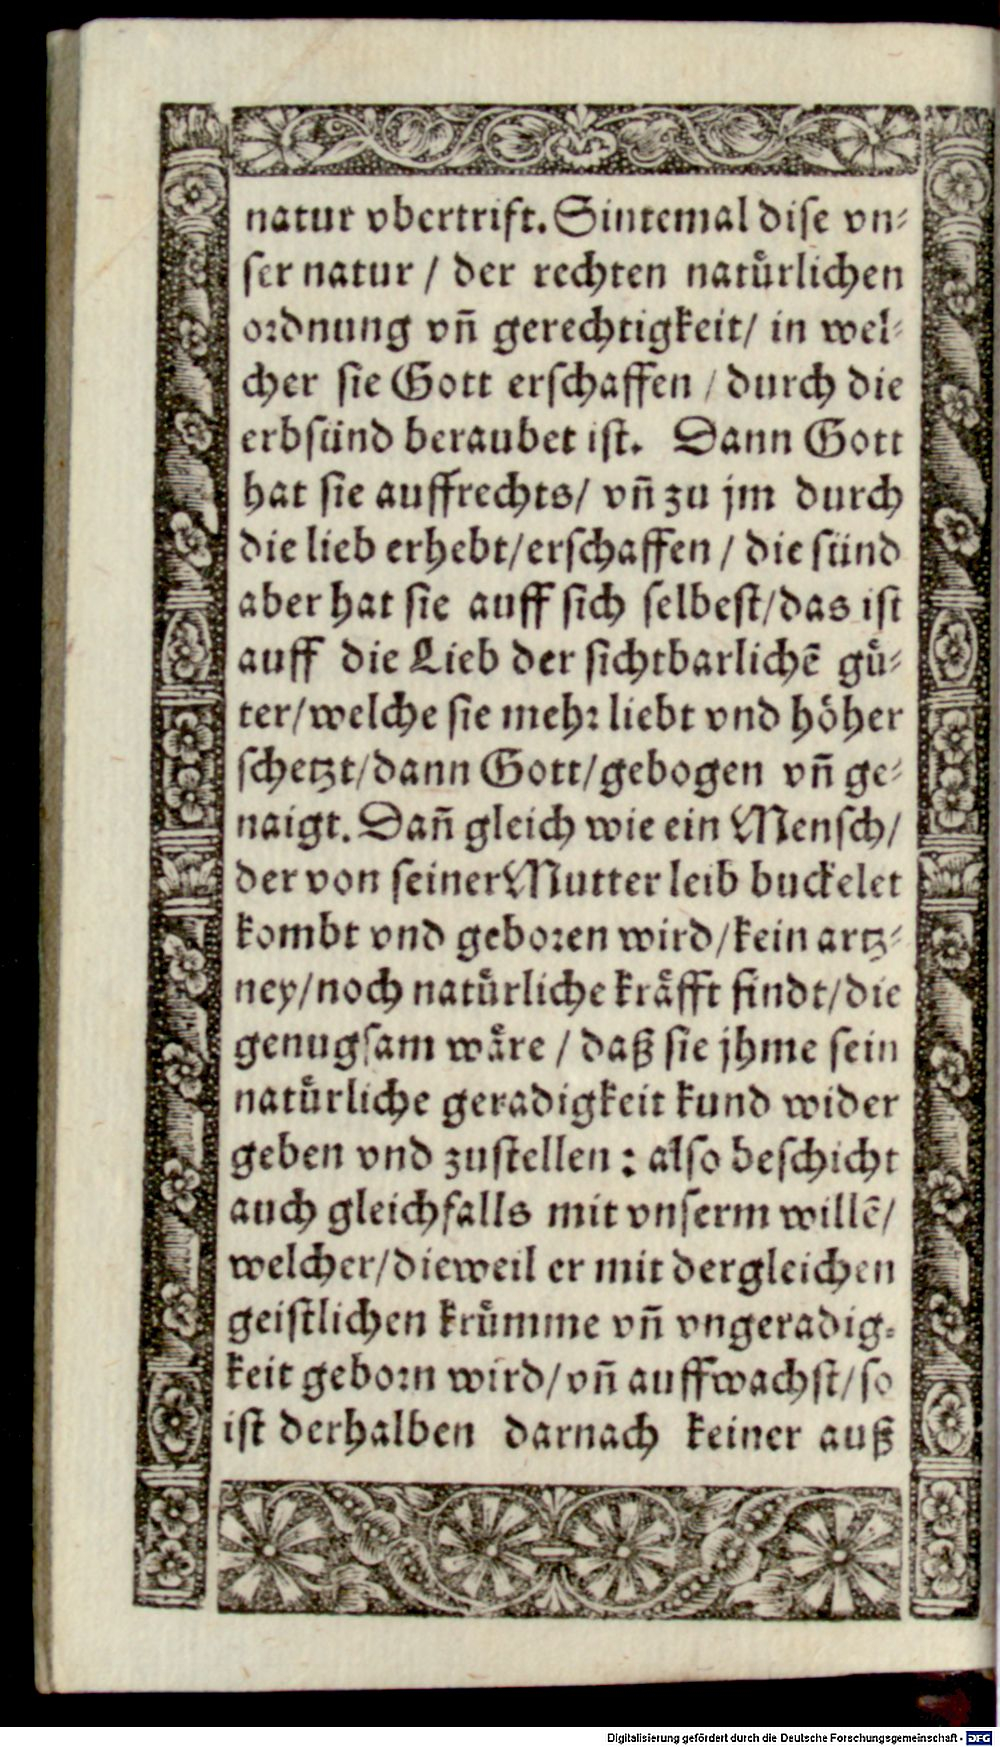 natur vbertrift. Sintemal dise vn⸗
ser natur / der rechten natuͤrlichen
ordnung vñ gerechtigkeit/ in wel⸗
cher sie Gott erschaffen / durch die
erbsünd beraubet ist. Dann Gott
hat sie auffrechts/ vñ zu jm durch
die lieb erhebt/erschaffen / die sünd
aber hat sie auff sich selbest/das ist
auff die Lieb der sichtbarlichē guͤ⸗
ter/welche sie mehr liebt vnd hoͤher
schetzt/dann Gott/gebogen vñ ge⸗
naigt. Dañ gleich wie ein Mensch/
der von seiner Mutter leib buckelet
kombt vnd geboren wird/kein artz⸗
ney/noch natuͤrliche kraͤfft findt/die
genugsam waͤre / daß sie jhme sein
natuͤrliche geradigkeit kund wider
geben vnd zustellen : also beschicht
auch gleichfalls mit vnserm willē/
welcher/dieweil er mit dergleichen
geistlichen kruͤmme vñ vngeradig⸗
keit geborn wird/vñ auffwachst/so
ist derhalben darnach keiner auß
Digitalisierung gefördert durch die Deutsche Forschungsgemeinschaft - DFG